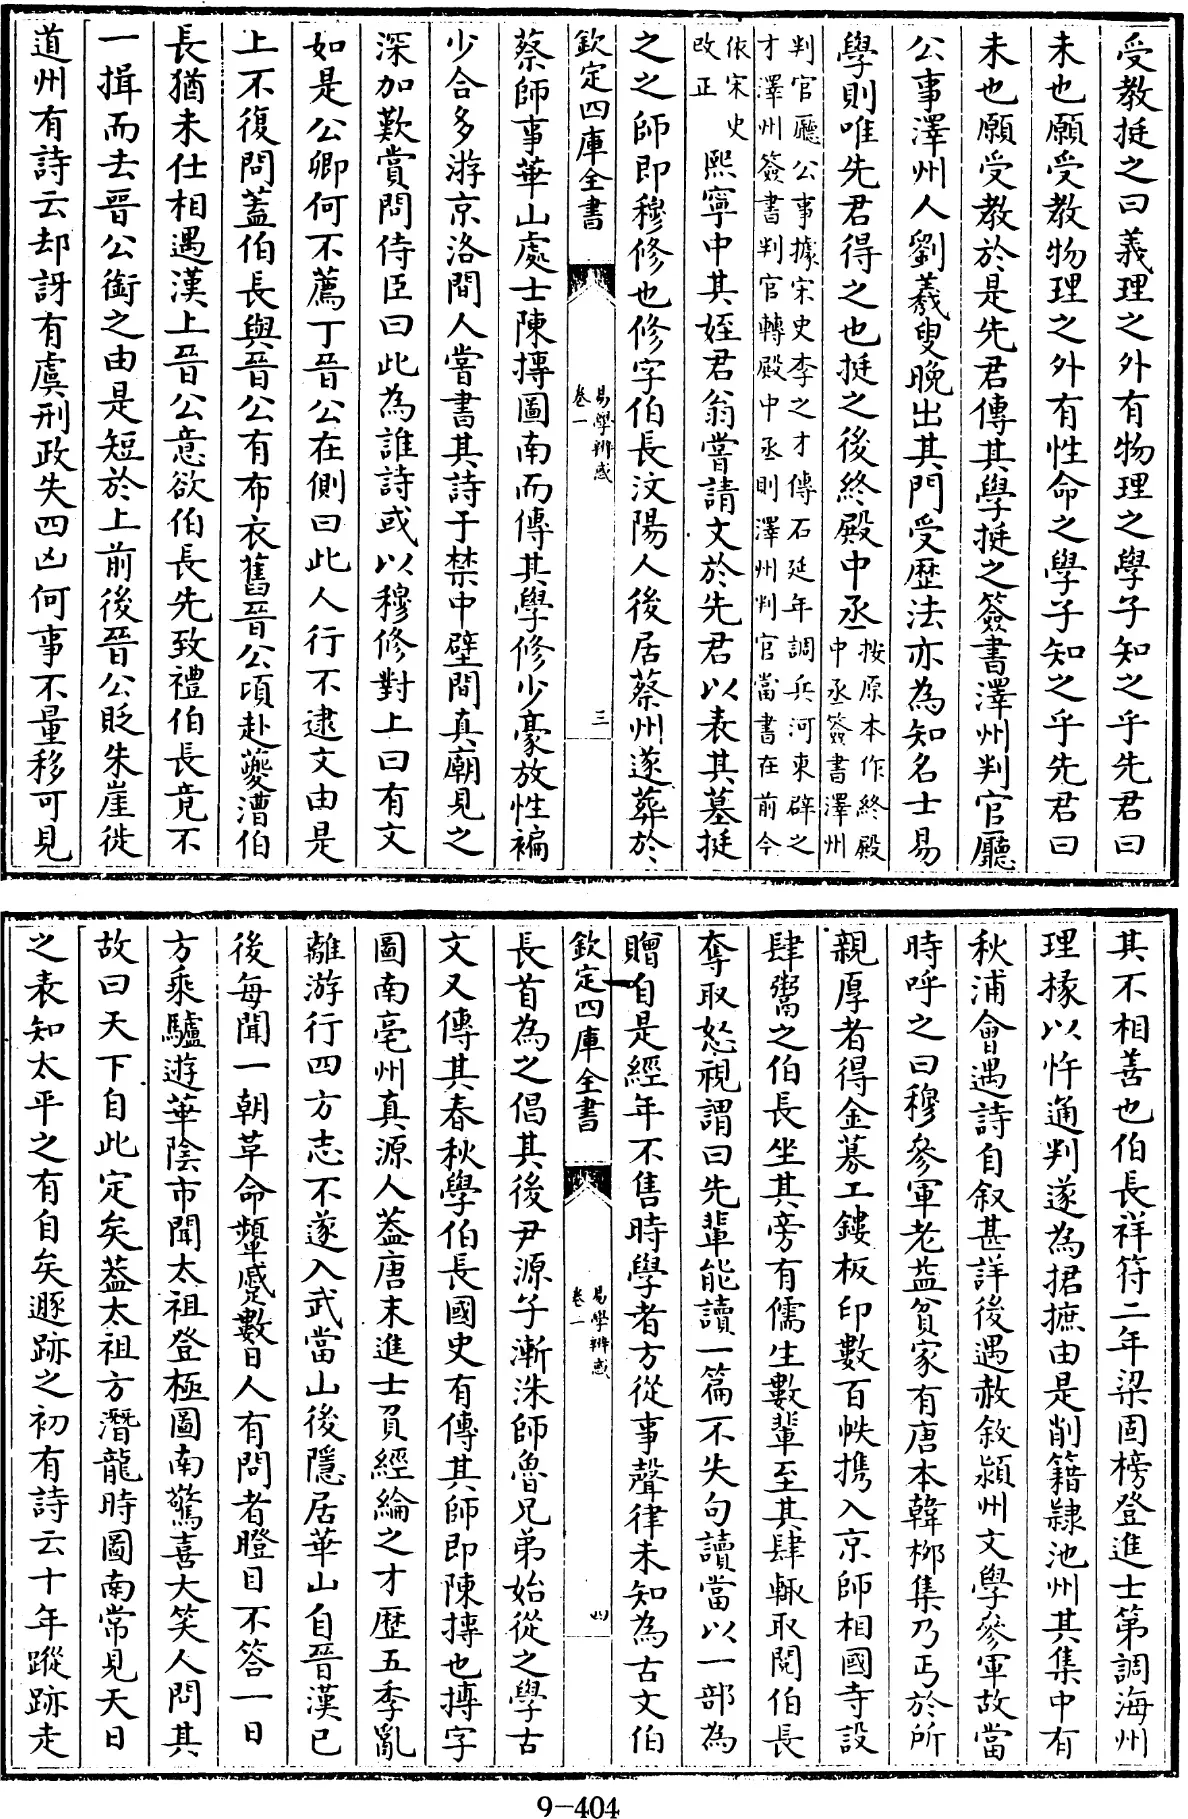 受教挺之曰義理之外有物理之學子知之乎先君曰
未也願受教物理之外有性命之學子知之乎先君曰
未也願受教於是先君傳其學挺之簽書澤州判官廳
公事澤州人劉羲叟晚出其門受歴法亦為知名士易
學則唯先君得之也挺之後終殿中丞按原本作終殿中丞簽書澤州
判官廳公事據宋史李之才傳石延年調兵河東辟之才澤州簽書判官轉殿中丞則澤州判官當書在前今
依宋史改正熙寧中其姪君翁嘗請文於先君以表其墓挺
之之師即穆修也修字伯長汶陽人後居蔡州遂葬於
欽定四庫全書 易學辨惑 卷一 三
蔡師事華山處士陳摶圖南而傳其學修少豪放性褊
少合多游京洛間人嘗書其詩于禁中壁間真廟見之
深加歎賞問侍臣曰此為誰詩或以穆修對上曰有文
如是公卿何不薦丁晉公在側曰此人行不逮文由是
上不復問蓋伯長與晉公有布衣舊晉公頃赴夔漕伯
長猶未仕相遇漢上晉公意欲伯長先致禮伯長竟不
一揖而去晉公銜之由是短於上前後晉公貶朱崖徙
道州有詩云却訝有虞刑政失四凶何事不量移可見
其不相善也伯長祥符二年梁固榜登進士第調海州
理掾以忤通判遂為捃摭由是削籍隷池州其集中有
秋浦會遇詩自叙甚詳後遇赦敘潁州文學參軍故當
時呼之曰穆參軍老益貧家有唐本韓桺集乃丐於所
親厚者得金募工鏤板印數百帙携入京師相國寺設
肆鬻之伯長坐其旁有儒生數輩至其肆輒取閱伯長
奪取怒視謂曰先輩能讀一篇不失句讀當以一部為
贈自是經年不售時學者方從事聲律未知為古文伯
欽定四庫全書 易學辨惑 卷一 四
長首為之倡其後尹源子漸洙師魯兄弟始從之學古
文又傳其春秋學伯長國史有傳其師即陳摶也摶字
圖南亳州真源人葢唐末進士負經綸之才歴五季亂
離游行四方志不遂入武當山後隱居華山自晉漢已
後每聞一朝革命顰蹙數日人有問者瞪目不答一日
方乘驢遊華陰市聞太祖登極圖南驚喜大笑人問其
故曰天下自此定矣葢太祖方潛龍時圖南常見天日
之表知太平之有自矣遯跡之初有詩云十年蹤跡走
9-404